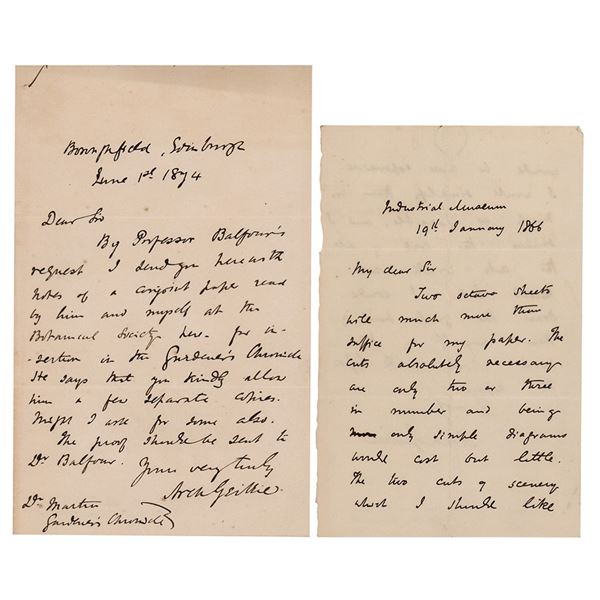 Boroughfield, Edinburgh
June 1st 1874
Dear Sir
By Professor Balfour's
request I send you herewith
notes of a conjoint paper read
by him and myself at the
Botanical Society here - for in-
-sertion in the Gardener's Chronicle
He says that you kindly allow
him a few separate copies.
Might I ask for some also.
The proof should be sent to
Dr Balfour. Yours very truly
Arch Geikie.
Dr Masters
Gardener's Chronicle
Industrial Museum
19th January 1866
My dear Sir
Two octavo sheets
will much more than
suffice for my paper. The
cuts absolutely necessary
are only two or three
in number and being
only simple diagrams
would cost but little.
The two cuts of scenery
which I should like